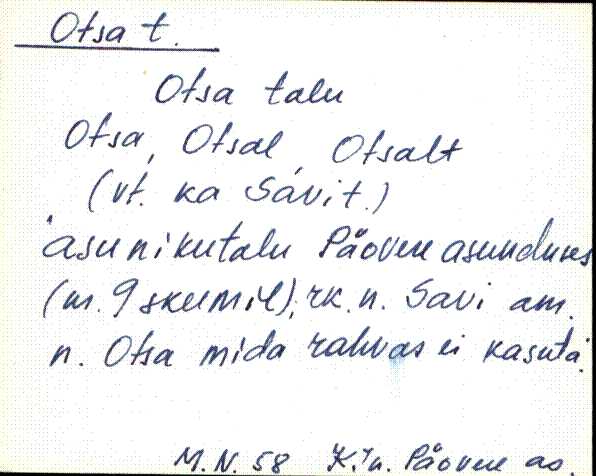 Otsa t.
Otsa talu
Otsa, Otsal, Otsalt
(vt. ka Savi t.)
asunikutalu Päovere asunduses
(m. 9 skeemil); rk. n. Savi am.
n. Otsa mida rahvas ei kasuta.
M.N. 58 K.Jn. Päovere as.